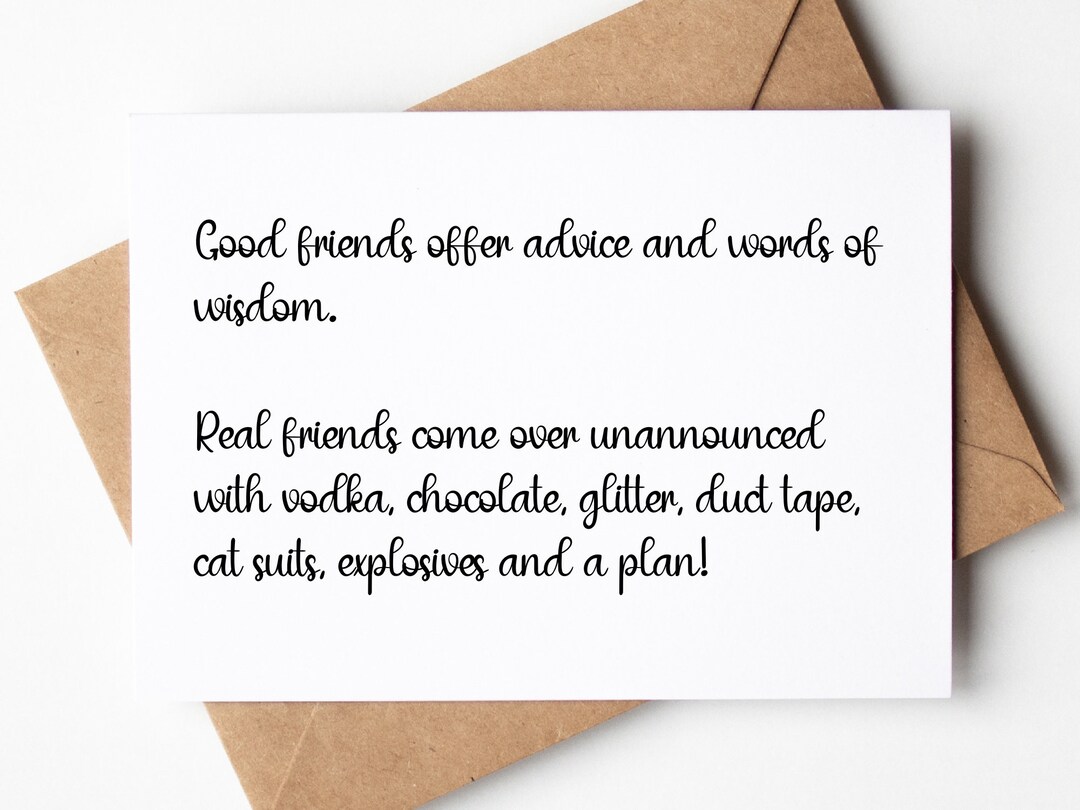 Good friends offer advice and words of
wisdom.
Real friends come over unannounced
with vodka, chocolate, glitter, duct tape,
cat suits, explosives and a plan!